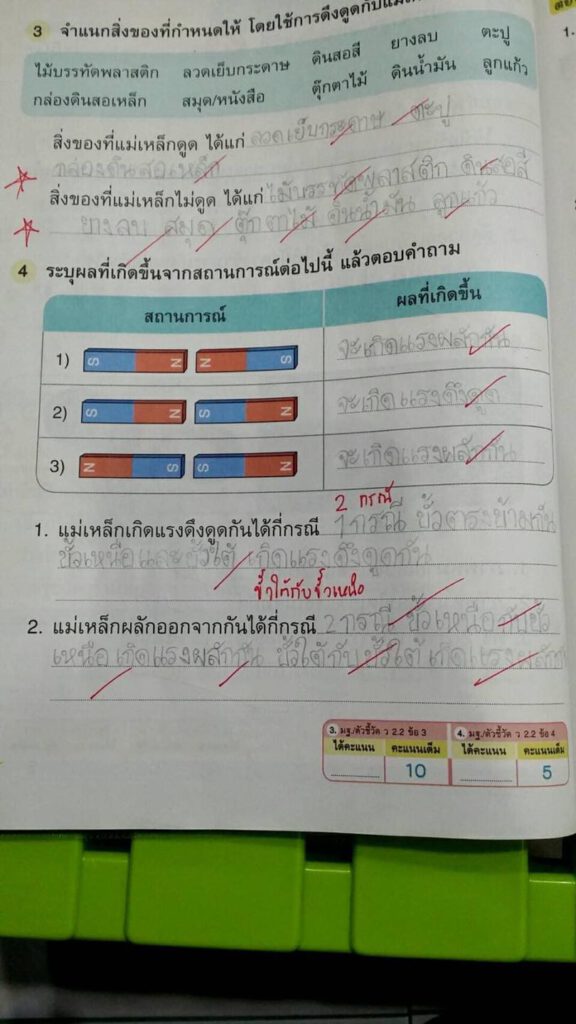 3 จำแนกสิ่งของที่กำหนดให้ โดยใช้การดึงดูดกับแม่เ
ไม้บรรทัดพลาสติก ลวดเย็บกระดาษ ดินสอสี ยางลบ ตะปู
กล่องดินสอเหล็ก สมุด/หนังสือ ตุ๊กตาไม้ ดินน้ำมัน ลูกแก้ว
สิ่งของที่แม่เหล็กดูด ได้แก่ ลวดเย็บกระดาษ ตะปู
กล่องดินสอเหล็ก
สิ่งของที่แม่เหล็กไม่ดูด ได้แก่ ไม้บรรทัดพลาสติก ดินสอสี
ยางลบ สมุด ตุ๊กตาไม้ ดินน้ำมัน ลูกแก้ว
4 ระบุผลที่เกิดขึ้นจากสถานการณ์ต่อไปนี้ แล้วตอบคำถาม
สถานการณ์ ผลที่เกิดขึ้น
1) S N N S จะเกิดแรงผลักกัน
2) S N S N จะเกิดแรงดึงดูด
3) N S S N จะเกิดแรงผลักกัน
2 กรณี
1. แม่เหล็กเกิดแรงดึงดูดกันได้กี่กรณี 1 กรณี ขั้วตรงข้ามกัน
ขั้วเหนือและขั้วใต้ เกิดแรงดึงดูดกัน
ขั้วใต้กับขั้วเหนือ
2. แม่เหล็กผลักออกจากกันได้กี่กรณี 2 กรณี ขั้วเหนือกับขั้ว
เหนือ เกิดแรงผลักกัน ขั้วใต้กับขั้วใต้ เกิดแรงผลัก
3. มฐ./ตัวชี้วัด ว 2.2 ข้อ 3 4. มฐ./ตัวชี้วัด ว 2.2 ข้อ 4
ได้คะแนน คะแนนเต็ม ได้คะแนน คะแนนเต็ม
10 5
1.